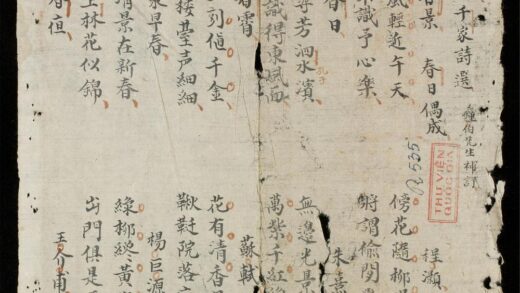 千家詩選
鍾伯先生補訂
景 春日偶成 程灝
風輕近午天 傍花隨柳
識予心樂 將謂偷閑
春日 朱熹
尋芳泗水濱 無邊光景
識得東風面 萬紫千紅
春宵 蘇軾
刻値千金 花有清香
樓臺声細細 鞦韆院落
早春 楊巨源
清景在新春 綠柳 黃
上林花似錦 出門俱是
春 王介甫
R.535
THƯ VIỆN
QUỐC GIA